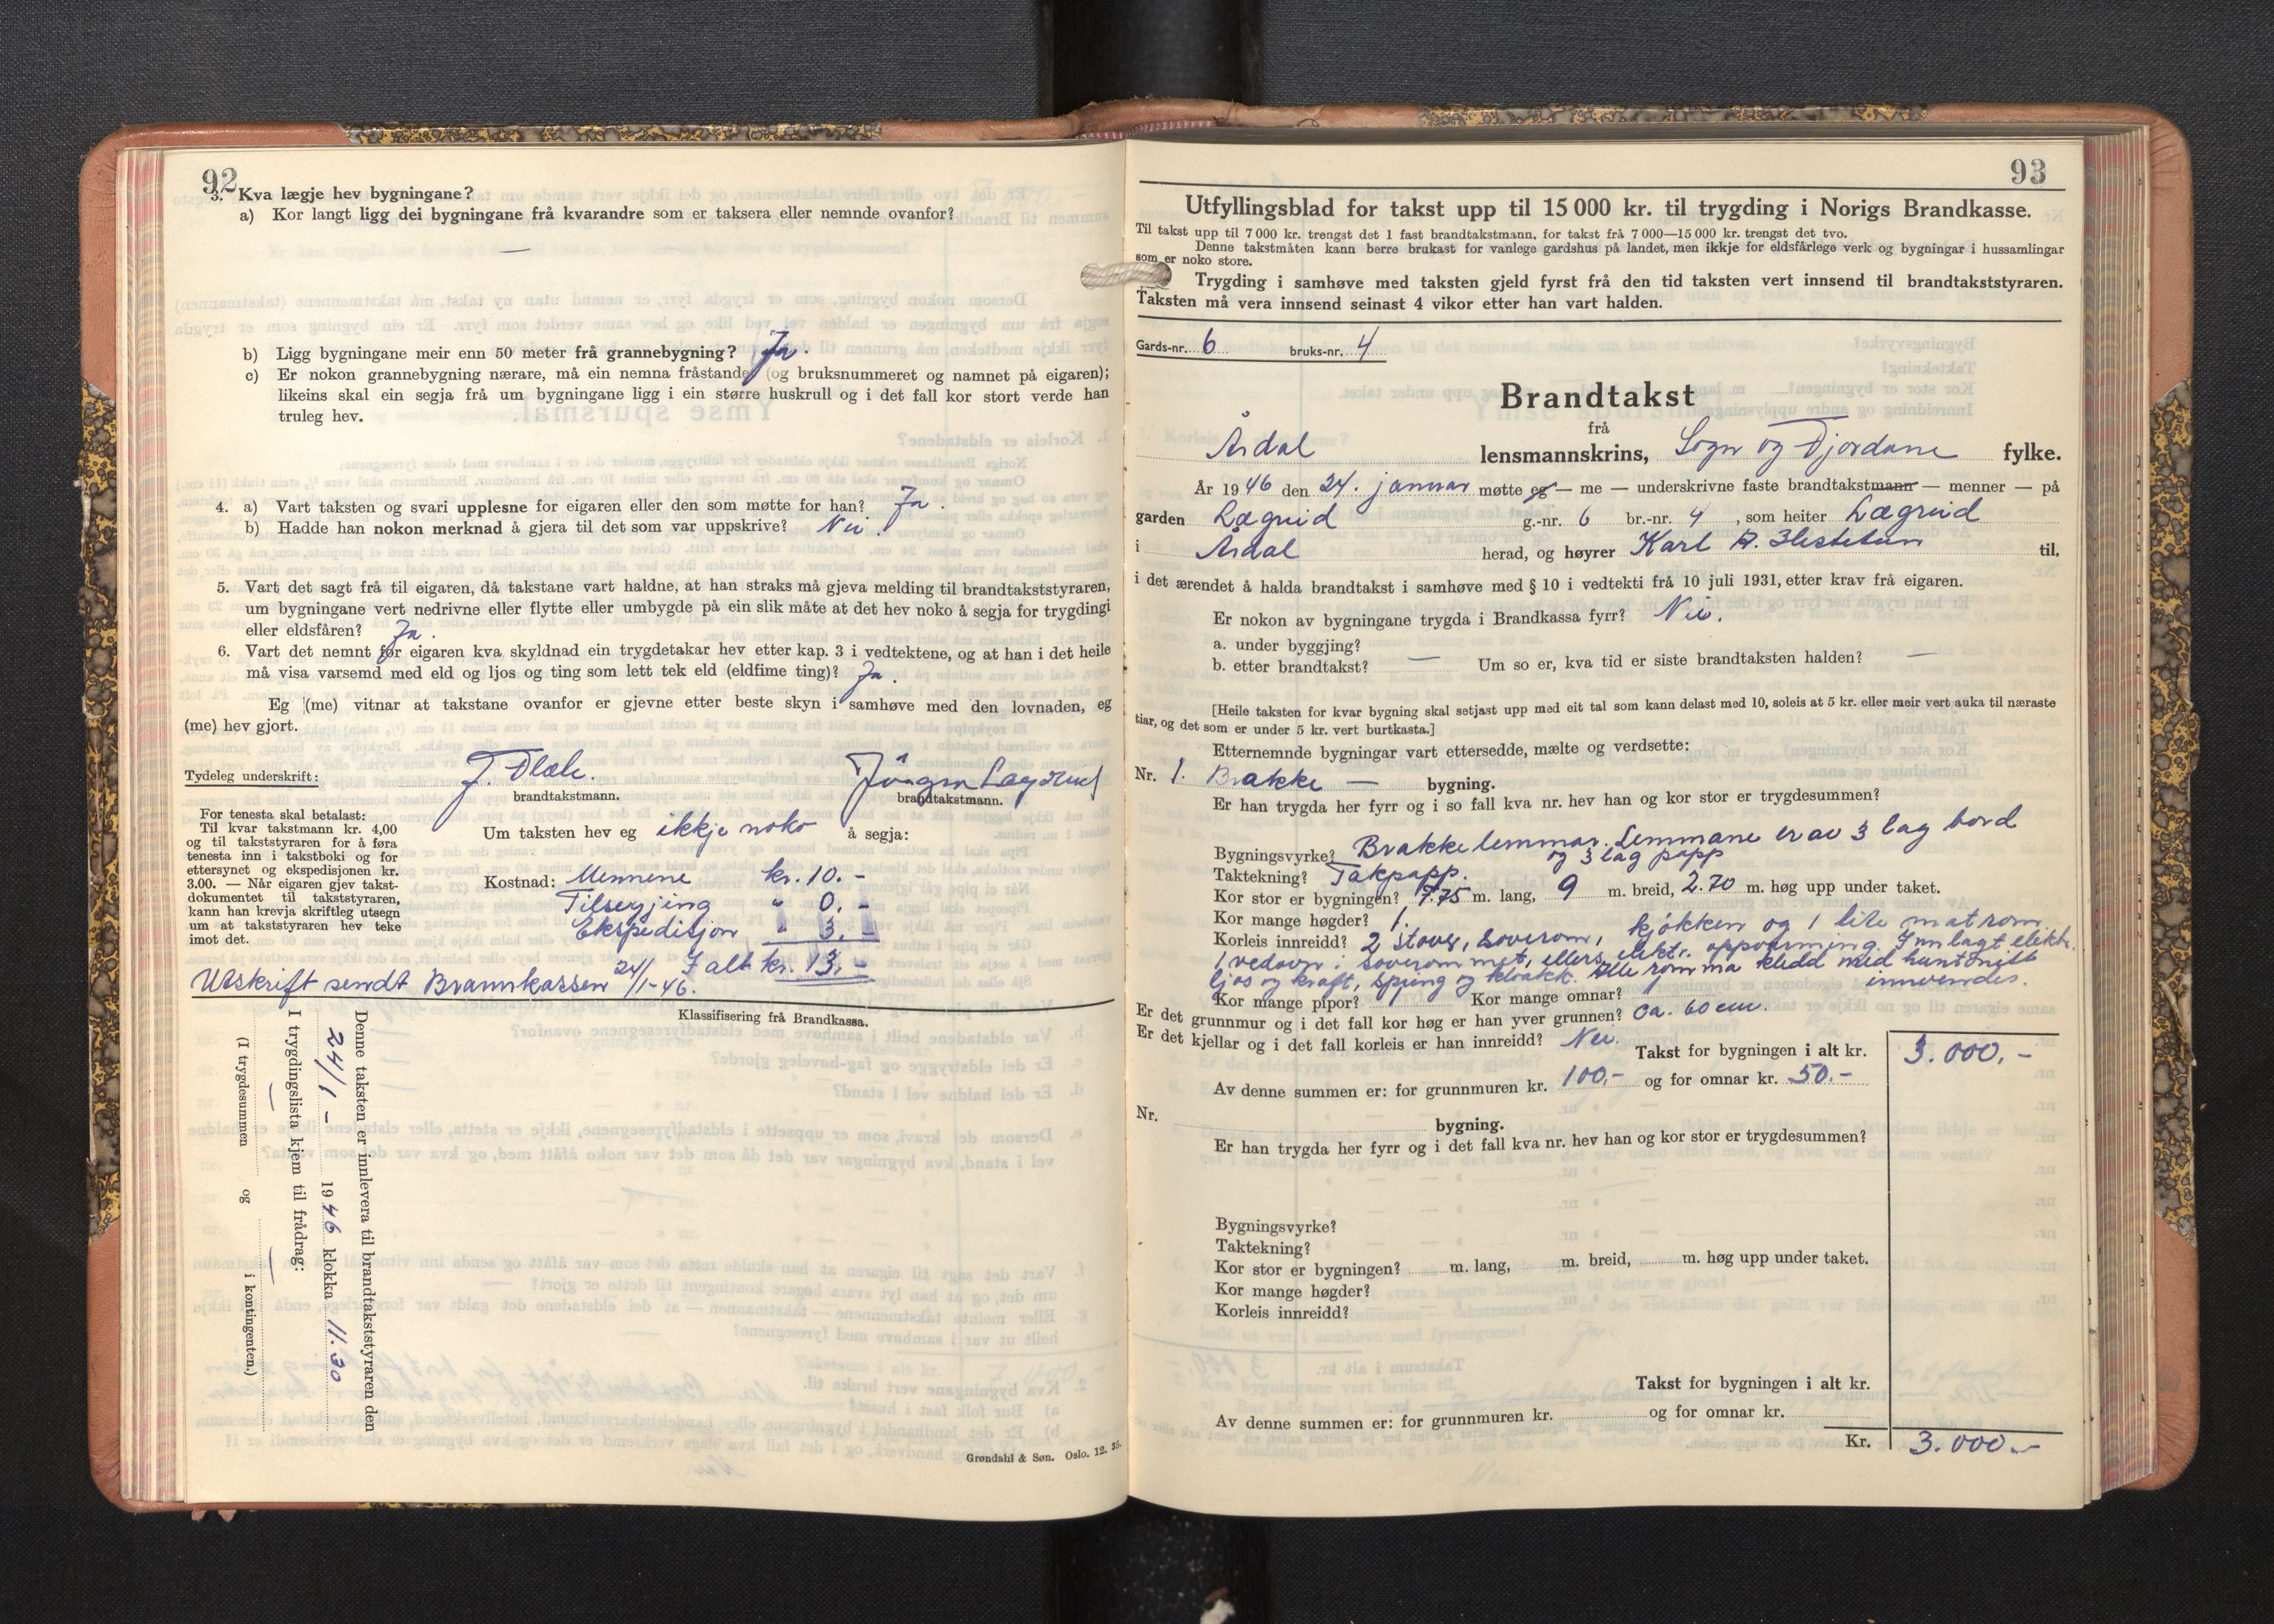 92
3. Kva lægje hev bygningane?
a) Kor langt ligg dei bygningane frå kvarandre som er taksera eller nemnde ovanfor?
—
b) Ligg bygningane meir enn 50 meter frå grannebygning? Ja.
c) Er nokon grannebygning nærare, må ein nemna fråstande (og bruksnummeret og namnet på eigaren);
likeins skal ein segja frå um bygningane ligg i ein større huskrull og i det fall kor stort verde han
truleg hev.
4. a) Vart taksten og svari upplesne for eigaren eller den som møtte for han? Ja.
b) Hadde han nokon merknad å gjera til det som var uppskrive? Nei.
5. Vart det sagt frå til eigaren, då takstane vart haldne, at han straks må gjeva melding til brandtakststyraren,
um bygningane vert nedrivne eller flytte eller umbygde på ein slik måte at det hev noko å segja for trygdingi
eller eldsfåren? Ja.
6. Vart det nemnt for eigaren kva skyldnad ein trygdetakar hev etter kap. 3 i vedtektene, og at han i det heile
må visa varsemd med eld og ljos og ting som lett tek eld (eldfime ting)? Ja.
Eg (me) vitnar at takstane ovanfor er gjevne etter beste skyn i samhøve med den lovnaden, eg
(me) hev gjort.
Tydeleg underskrift: J. Jørgen Lægreid
brandtakstmann. brandtakstmann.
For tenesta skal betalast:
Til kvar takstmann kr. 4,00
og til takststyraren for å føra
tenesta inn i takstboki og for
ettersynet og ekspedisjonen kr.
3.00. — Når eigaren gjev takst-
dokumentet til takststyraren,
kann han krevja skriftleg utsegn
um at takststyraren hev teke
imot det.
Um taksten hev eg ikkje noko å segja:
Kostnad: Mennene kr. 10.-
Tilsegjing " 0.-
Ekspedisjon " 3.-
I alt kr. 13.-
Utskrift sendt Brannkassen 24/1-46.
Klassifisering frå Brandkassa.
Denne taksten er innlevera til brandtakststyraren den
24/1 - 1946 klokka 11.30
I trygdingslista kjem til frådrag:
(I trygdesummen — og — i kontingenten.)
Grøndahl & Søn. Oslo. 12. 35.
93
Utfyllingsblad for takst upp til 15 000 kr. til trygding i Norigs Brandkasse.
Til takst upp til 7 000 kr. trengst det 1 fast brandtakstmann, for takst frå 7 000—15 000 kr. trengst det tvo.
Denne takstmåten kann berre brukast for vanlege gardshus på landet, men ikkje for eldsfårlege verk og bygningar i hussamlingar
som er noko store.
Trygding i samhøve med taksten gjeld fyrst frå den tid taksten vert innsend til brandtakststyraren.
Taksten må vera innsend seinast 4 vikor etter han vart halden.
Gards-nr. 6 bruks-nr. 4
Brandtakst
frå
Årdal lensmannskrins, Sogn og Fjordane fylke.
År 1946 den 24. januar møtte eg — me — underskrivne faste brandtakstmann — menner — på
garden Lægreid g.-nr. 6 br.-nr. 4, som heiter Lægreid
i Årdal herad, og høyrer Karl A. Hestetun til,
i det ærendet å halda brandtakst i samhøve med § 10 i vedtekti frå 10 juli 1931, etter krav frå eigaren.
Er nokon av bygningane trygda i Brandkassa fyrr? Nei.
a. under byggjing?
b. etter brandtakst? — Um so er, kva tid er siste brandtaksten halden? —
[Heile taksten for kvar bygning skal setjast upp med eit tal som kann delast med 10, soleis at 5 kr. eller meir vert auka til næraste
tiar, og det som er under 5 kr. vert burtkasta.]
Etternemnde bygningar vart ettersedde, mælte og verdsette:
Nr. 1. Brakke — bygning.
Er han trygda her fyrr og i so fall kva nr. hev han og kor stor er trygdesummen?
Bygningsvyrke? Brakkelemmar. Lemmane er av 3 lag bord
og 3 lag papp
Taktekning? Takpapp.
Kor stor er bygningen? 7.75 m. lang, 9 m. breid, 2.70 m. høg upp under taket.
Kor mange høgder? 1.
Korleis innreidd? 2 stover, soverom, kjøkken og 1 lite matrom
1 vedovn i soverommet, ellers elektr. oppvarming. Innlagt elektr.
ljos og kraft, spring og kloakk. Alle romma kledd med huntonitt
innvendes.
Kor mange pipor? Kor mange omnar?
Er det grunnmur og i det fall kor høg er han yver grunnen? ca. 60 cm.
Er det kjellar og i det fall korleis er han innreidd? Nei.
Takst for bygningen i alt kr. 3.000,-
Av denne summen er: for grunnmuren kr. 100,- og for omnar kr. 50.-
Nr. bygning.
Er han trygda her fyrr og i det fall kva nr. hev han og kor stor er trygdesummen?
Bygningsvyrke?
Taktekning?
Kor stor er bygningen? m. lang, m. breid, m. høg upp under taket.
Kor mange høgder?
Korleis innreidd?
Takst for bygningen i alt kr.
Av denne summen er: for grunnmuren kr. og for omnar kr.
Kr. 3.000.-